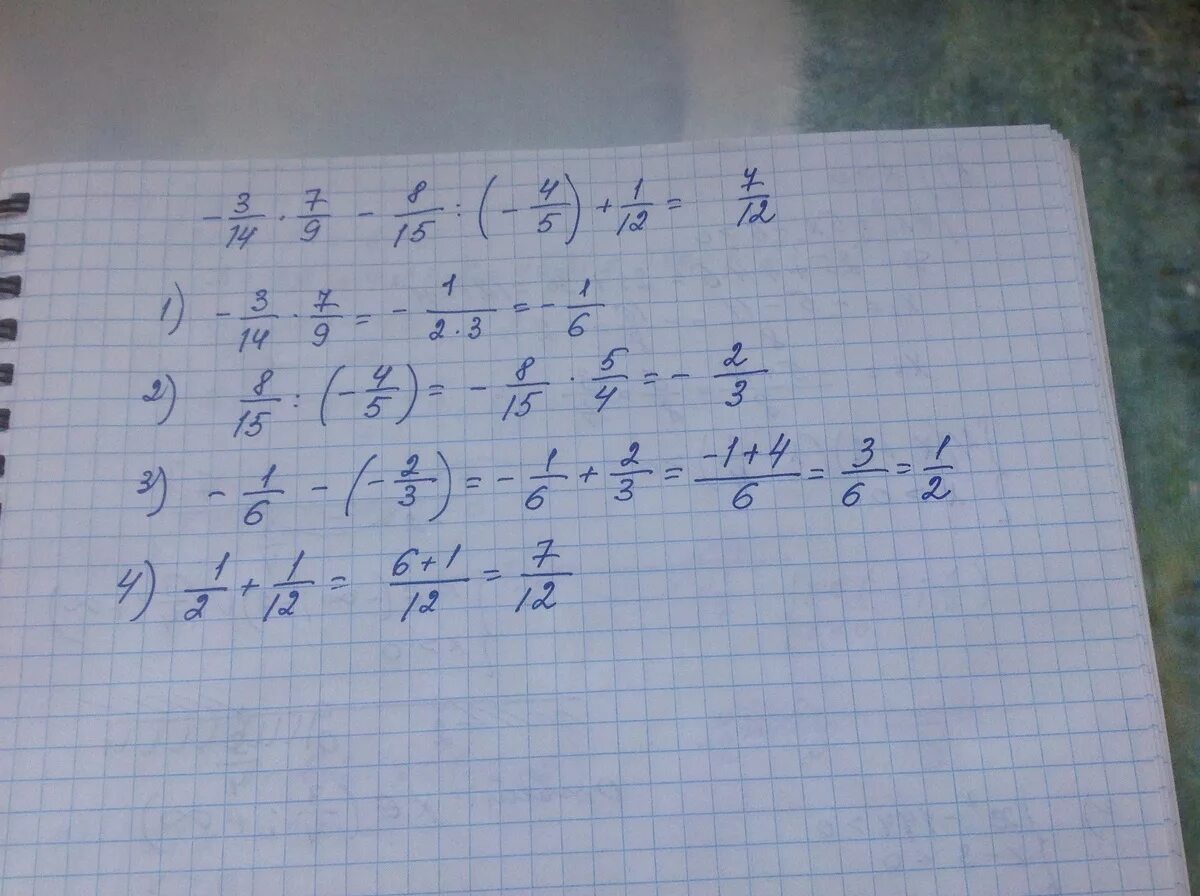 -3/14 · 7/9 - 8/15 : (-4/5) + 1/12 = 7/12
1) -3/14 · 7/9 = -1/(2·3) = -1/6
2) 8/15 : (-4/5) = -8/15 · 5/4 = -2/3
3) -1/6 - (-2/3) = -1/6 + 2/3 = (-1+4)/6 = 3/6 = 1/2
4) 1/2 + 1/12 = (6+1)/12 = 7/12